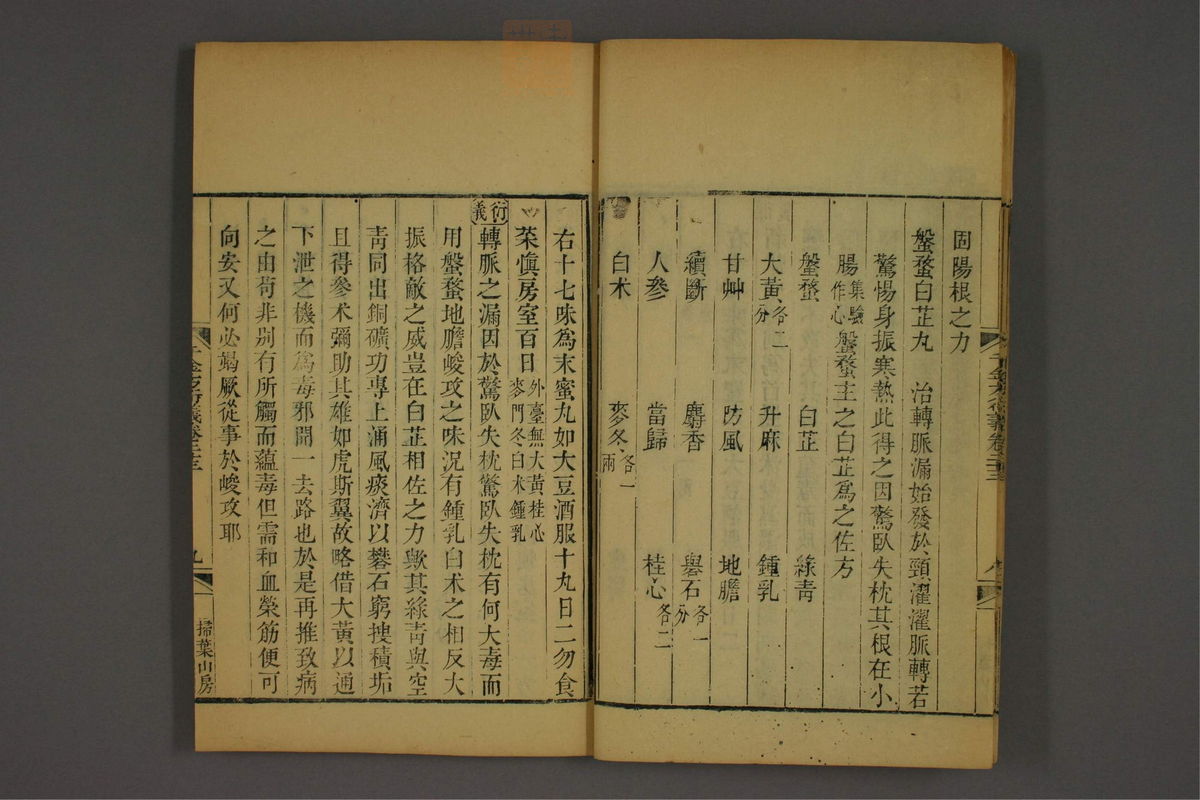 固陽根之力
盤蝥白芷丸　治轉脈漏始發於頸濯濯脈轉若
驚惕身振寒熱此得之因驚臥失枕其根在小
腸集驗作心盤蝥主之白芷爲之佐方
盤蝥　白芷　綠青
大黃各二分　升麻　鍾乳
甘艸　防風　地膽
續斷　麝香　礜石各一分
人參　當歸　桂心各二
白术　麥冬各一兩
千金方衍義卷二十三
八
右十七味爲末蜜丸如大豆酒服十丸日二勿食
菜愼房室百日外臺無大黃桂心麥門冬白术鍾乳
衍義
轉脈之漏因於驚臥失枕驚臥失枕有何大毒而
用盤蝥地膽峻攻之味況有鍾乳白术之相反大
振格敵之威豈在白芷相佐之力歟其綠青與空
靑同出銅礦功專上涌風痰濟以礬石窮搜積垢
且得參术彌助其雄如虎斯翼故略借大黃以通
下泄之機而爲毒邪開一去路也於是再推致病
之由苟非别有所觸而蘊毒但需和血榮筋便可
向安又何必竭厥從事於峻攻耶
千金方衍義卷二十三
九
掃葉山房